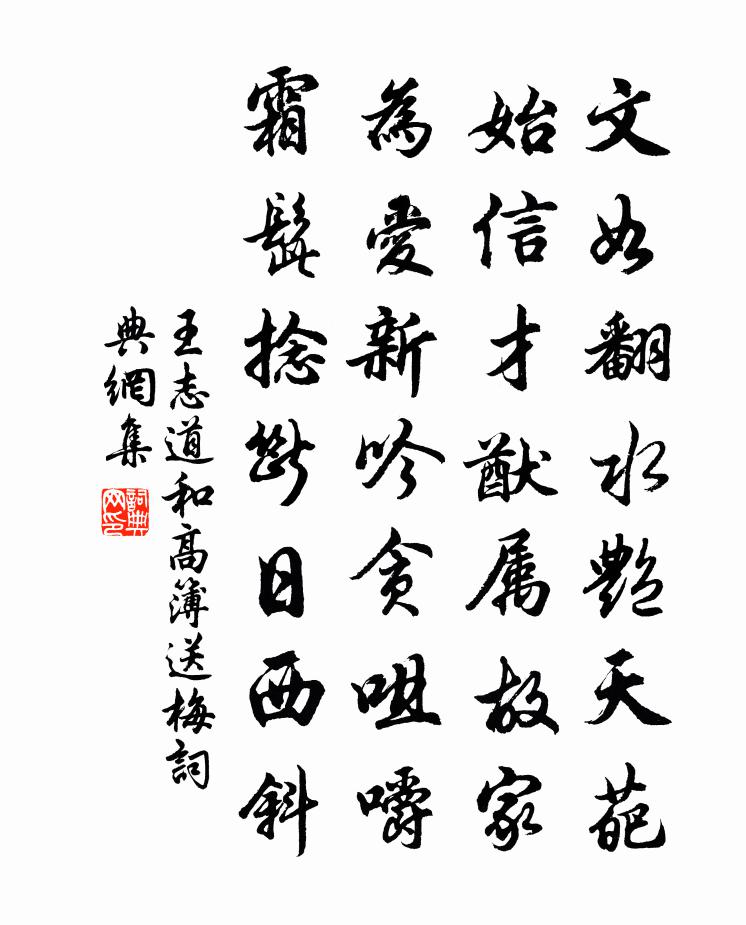 文如翻水艷天葩
始信才猷属故家
為愛新吟貪咀嚼
霜髭捻斷日西斜
王志道和高簿送梅詞
典網集
詞典网印